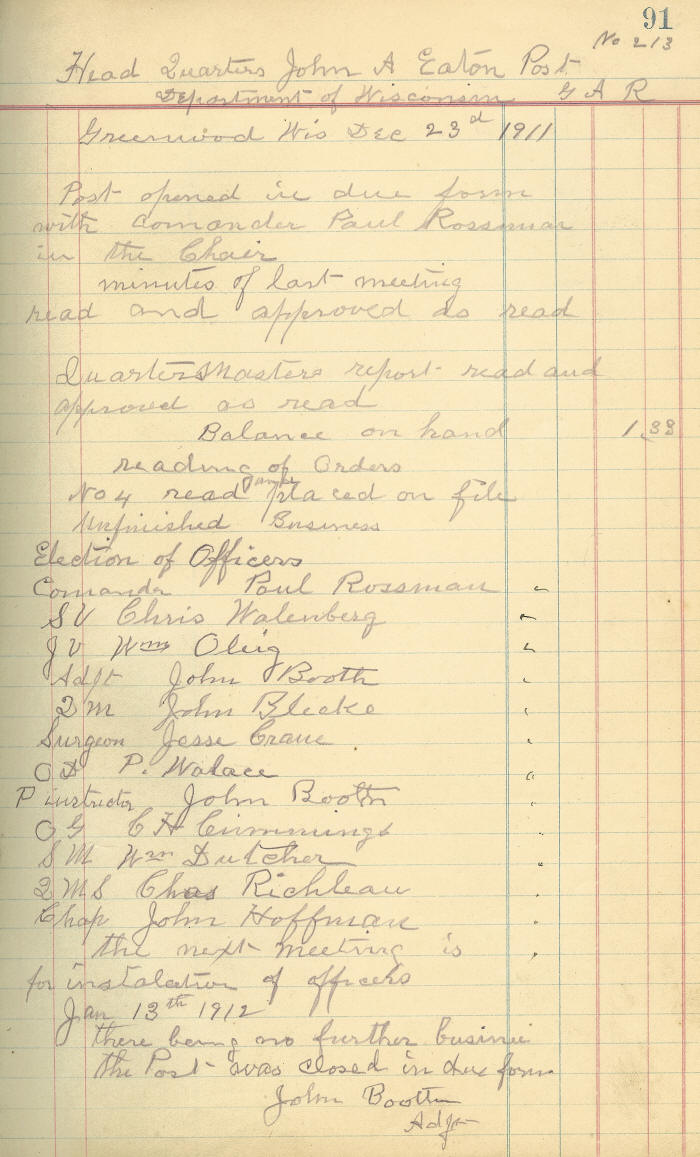 91
No 213
Head Quarters John A Eaton Post
Department of Wisconsin G A R
Greenwood Wis Dec 23d 1911
Post opened in due form
with Comander Paul Rossman
in the Chair
minutes of last meeting
read and approved as read
QuartersMasters report read and
approved as read
Balance on hand 1.33
reading of Orders
No 4 read and placed on file
Unfinished Business
Election of Officers
Comander Paul Rossman "
S V Chris Walenberg "
J V Wm Oleig "
Adjt John Booth "
2 M John Blecke "
Surgeon Jesse Crane "
O D P. Walace "
P instructor John Booth "
O G C H Cummings "
S M Wm Dutcher "
2 M S Chas Richleau "
Chap John Hoffman "
the next meeting is "
for instalation of officers
Jan 13th 1912
there being no further busine
the Post was closed in due form
John Booth
Adjt